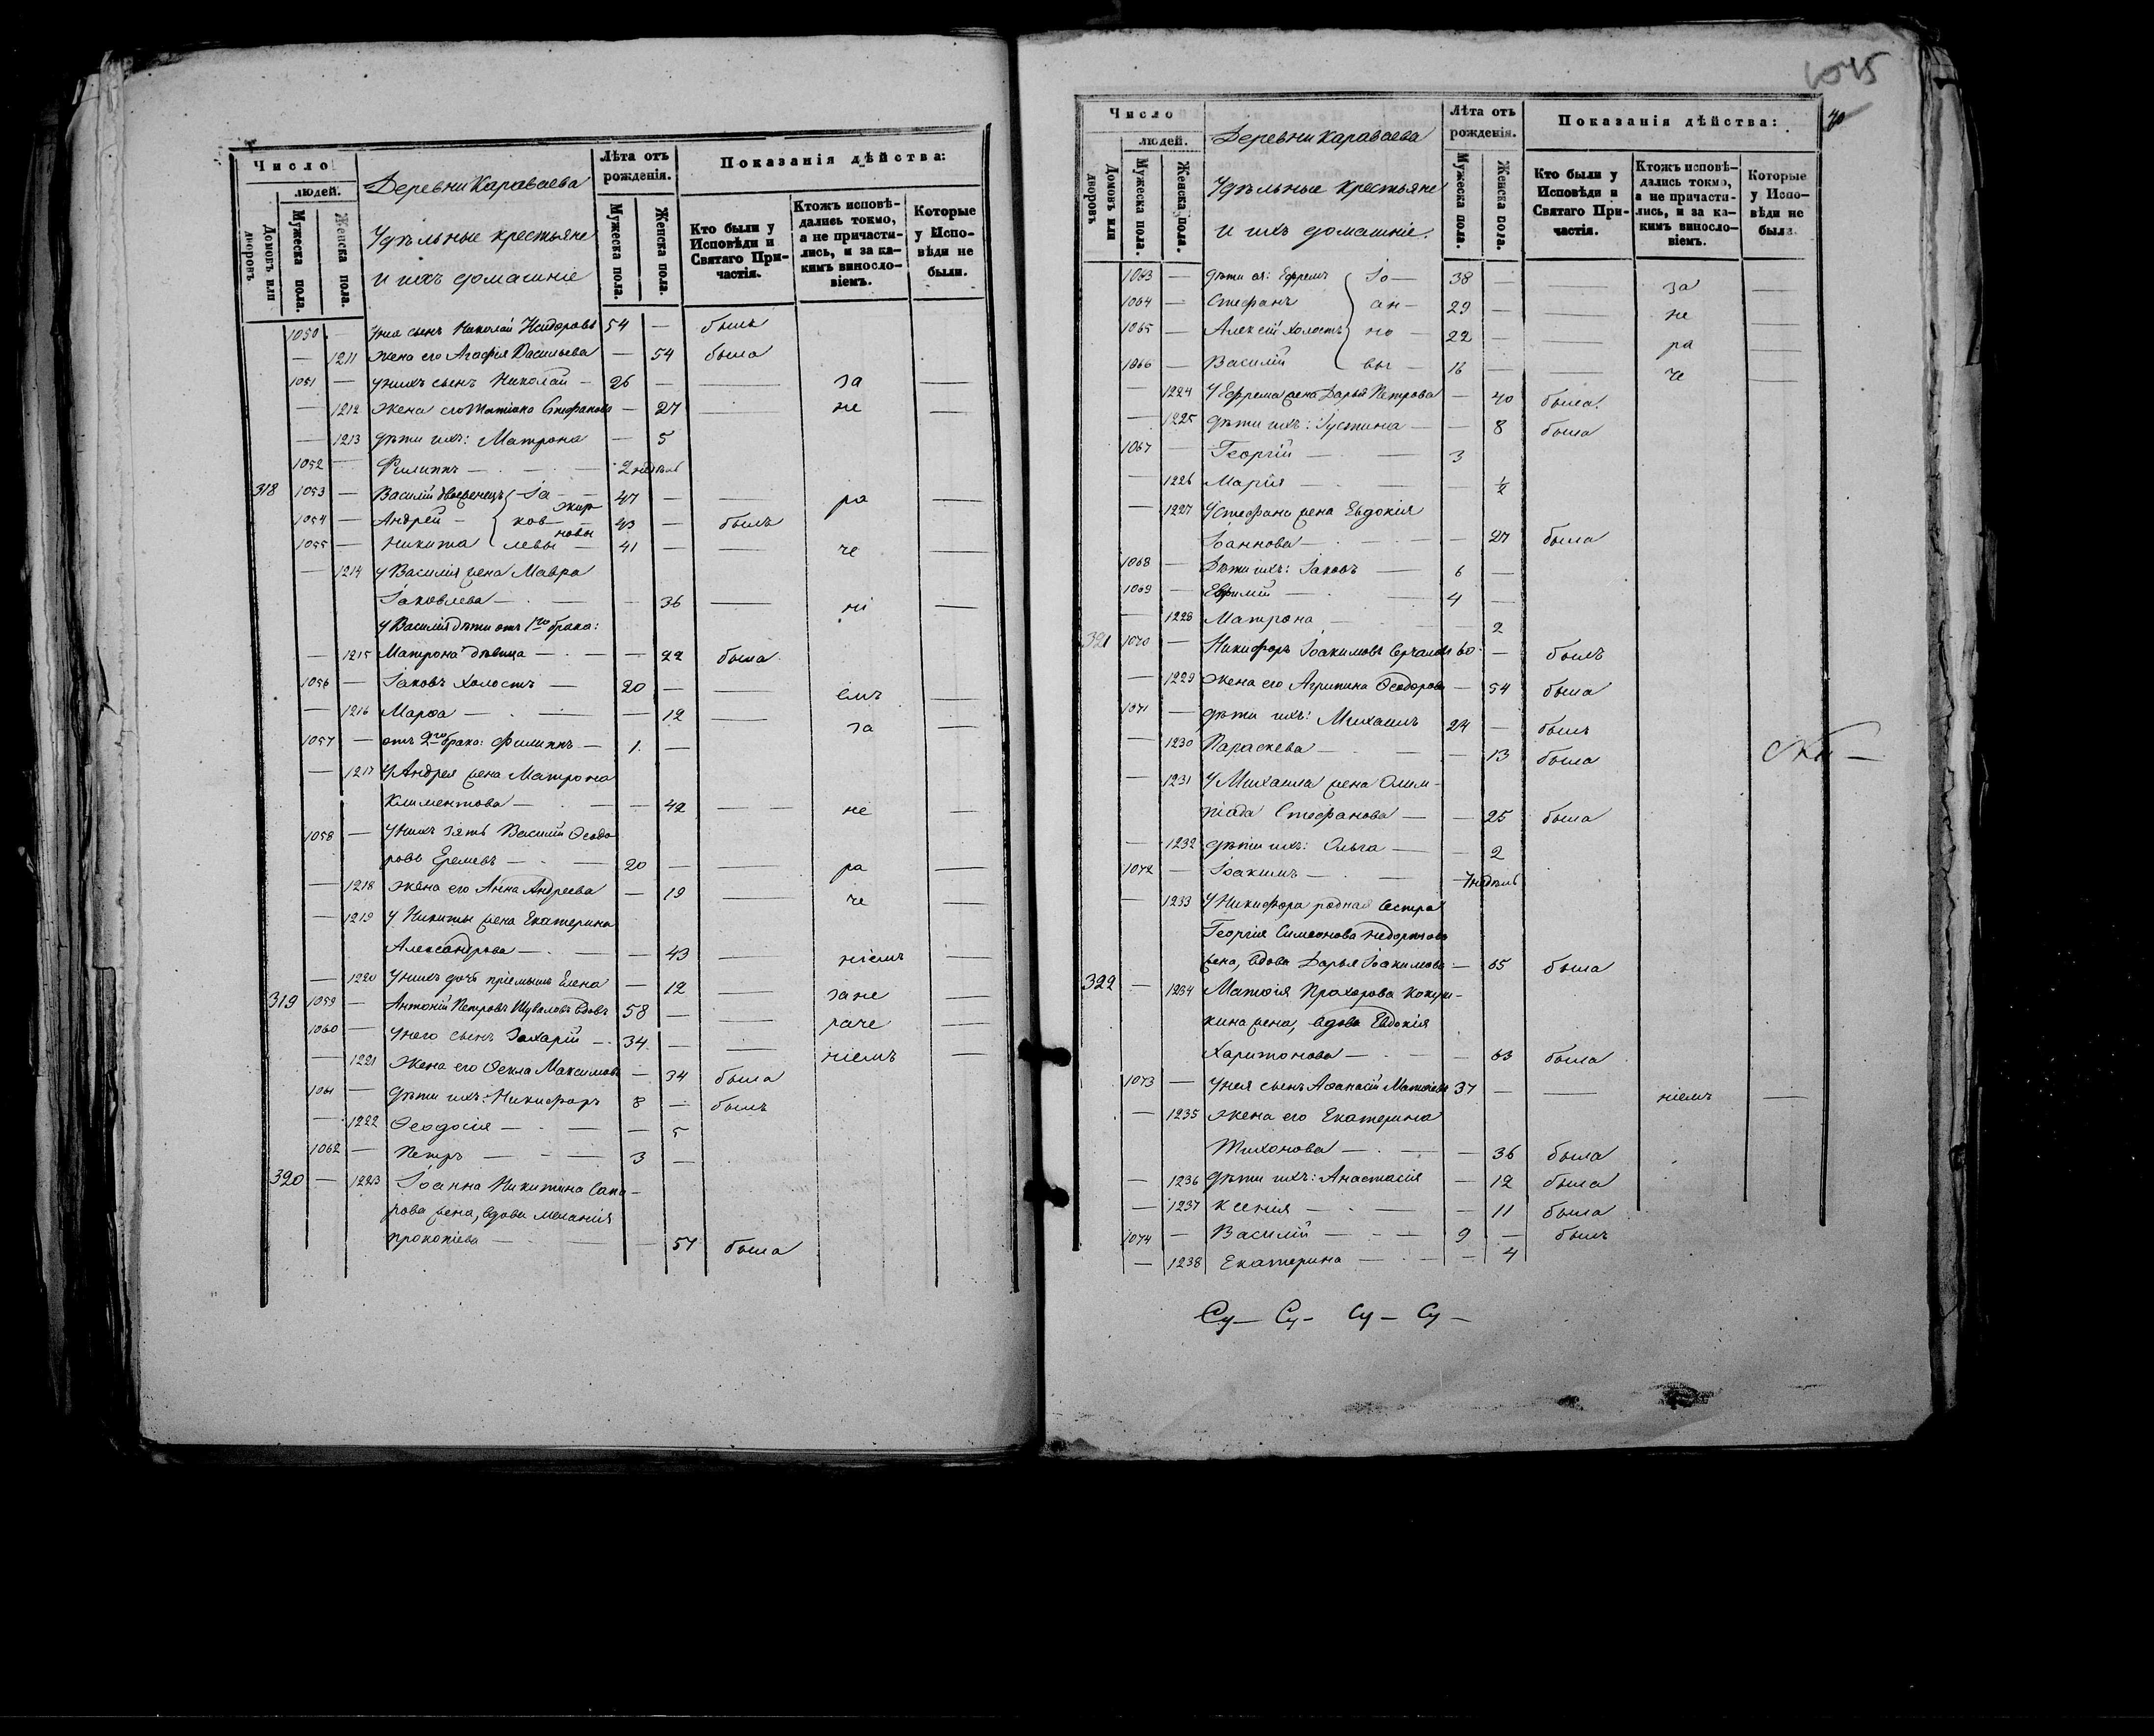 Число
людей.
Домовъ или дворовъ
Мужеска пола.
Женска пола.
Деревни Караваева
Удѣльные крестьяне
и ихъ домашніе
Лѣта отъ рожденія.
Мужеска пола.
Женска пола.
Показанія дѣйства:
Кто были у Исповѣди и Святаго Причастія.
Ктожъ исповѣдались токмо, а не причастились, и за какимъ винословіемъ.
Которые у Исповѣди не были.
1050 — сынъ Николай Исидоровъ 54 — былъ
— 1211 жена его Агафія Васильева — 54 была
1051 — у нихъ сынъ Николай — 26 — — за —
— 1212 жена его Татіана Стефанова — 27 — не —
— 1213 дѣти ихъ: Матрона — 5
1052 — Филиппъ — 2 недѣль
318 1053 — Василій двоеженецъ Іа — 47 — — ра —
1054 — Андрей — ков — жир — 43 — былъ
1055 — Никита левы — новы 41 — — че —
— 1214 у Василія жена Мавра
Іаковлева — — 36 — ні —
у Василія дѣти отъ 1го брака:
— 1215 Матрона дѣвица — — 22 была
1056 — Іаковъ холостъ — 20 — — емъ —
— 1216 Марѳа — — 12 — за —
1057 — отъ 2го брака: Филиппъ — 1 —
— 1217 у Андрея жена Матрона
Климентова — — 42 — не —
1058 — у нихъ зять Василій Ѳеодо
ровъ Еремевъ — 20 — — ра —
— 1218 жена его Анна Андреева — 19 — че —
— 1219 у Никиты жена Екатерина
Александрова — — 43 — ніемъ —
— 1220 у нихъ дочь пріемышъ Елена — 12 — зане —
319 1059 — Антоній Петровъ Шуваловъ вдовъ 58 — — раче —
1060 — у него сынъ Захарій — 34 — — ніемъ —
— 1221 жена его Ѳекла Максимова — 34 была
1061 — дѣти ихъ: Никифоръ 8 — былъ
— 1222 Ѳеодосія — — 5
1062 — Петръ — 3 —
320 — 1223 Іоанна Никитина Сапо-
рова жена, вдова Меланія
Прокопіева — — 57 была
1075
40
Число
людей.
Домовъ или дворовъ
Мужеска пола.
Женска пола.
Деревни Караваева
Удѣльные крестьяне
и ихъ домашніе.
Лѣта отъ рожденія.
Мужеска пола.
Женска пола.
Показанія дѣйства:
Кто были у Исповѣди и Святаго Причастія.
Ктожъ исповѣдались токмо, а не причастились, и за какимъ винословіемъ.
Которые у Исповѣди не были.
1063 — дѣти ея: Ефремъ Іо — 38 — — за —
1064 — Стефанъ ан — 29 — — не —
1065 — Алексій холостъ но — 22 — — ра —
1066 — Василій вы — 16 — — че —
— 1224 у Ефрема жена Дарья Петрова — 40 была
— 1225 дѣти ихъ: Іустина — — 8 была
1067 — Георгій — 3
— 1226 Марія — — ½
— 1227 у Стефана жена Евдокія
Іоаннова — — 27 была
1068 — Дѣти ихъ: Іаковъ — 6 —
1069 — Евфимій — 4 —
— 1228 Матрона — — 2
321 1070 — Никифоръ Іоакимовъ 60 — былъ
— 1229 жена его Агрипина Ѳеодорова — 54 была
1071 — дѣти ихъ: Михаилъ 24 — былъ
— 1230 Параскева — — 13 была
— 1231 у Михаила жена Олим-
піада Стефанова — — 25 была
— 1232 дѣти ихъ: Ольга — — 2
1072 — Іоакимъ — 7 недѣль
— 1233 у Никифора родная сестра
Георгія Симеонова
жена, вдова Дарья Іоакимова — 65 была
322 — 1234 Матѳія Прохорова Кокуш-
кина жена, вдова Евдокія
Харитонова — — 63 была
1073 — у нея сынъ Аѳанасій Матѳіевъ 37 — — ніемъ —
— 1235 жена его Екатерина
Тихонова — — 36 была
— 1236 дѣти ихъ: Анастасія — 12 была
— 1237 Ксенія — — 11 была
1074 — Василій — 9 — былъ
— 1238 Екатерина — — 4